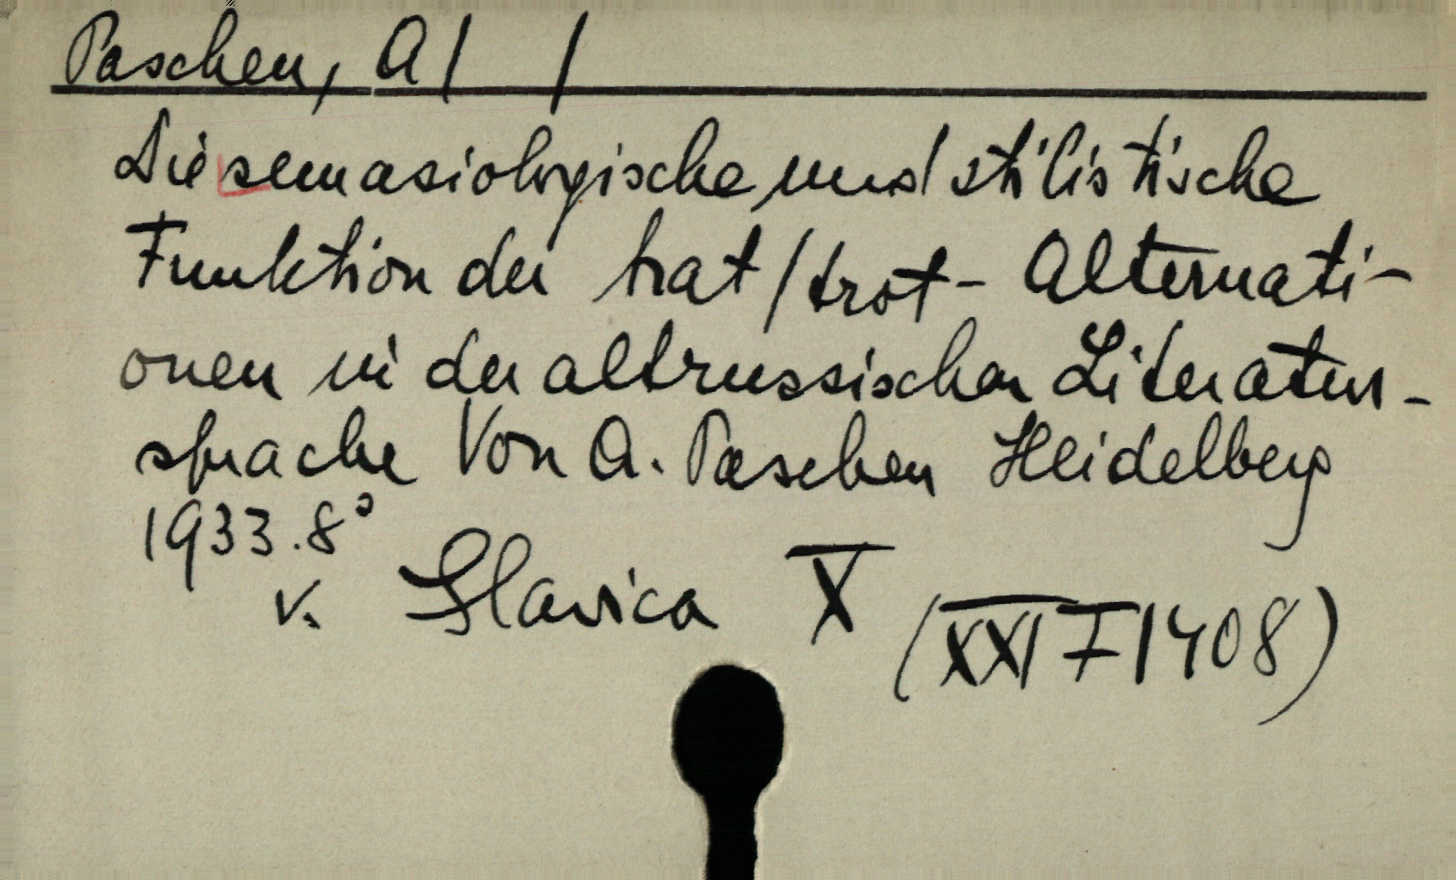 Paschen, A/ /
Die semasiologische und stilistische
Funktion der trat/trot- Alternati-
onen in der altrussischen Literatur-
sprache Von A. Paschen Heidelberg
1933. 8°
v. Slavica X
(XXI I 1408)